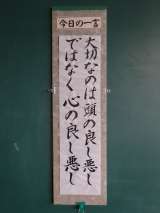 今日の一言
大切なのは頭の良し悪し
ではなく心の良し悪し